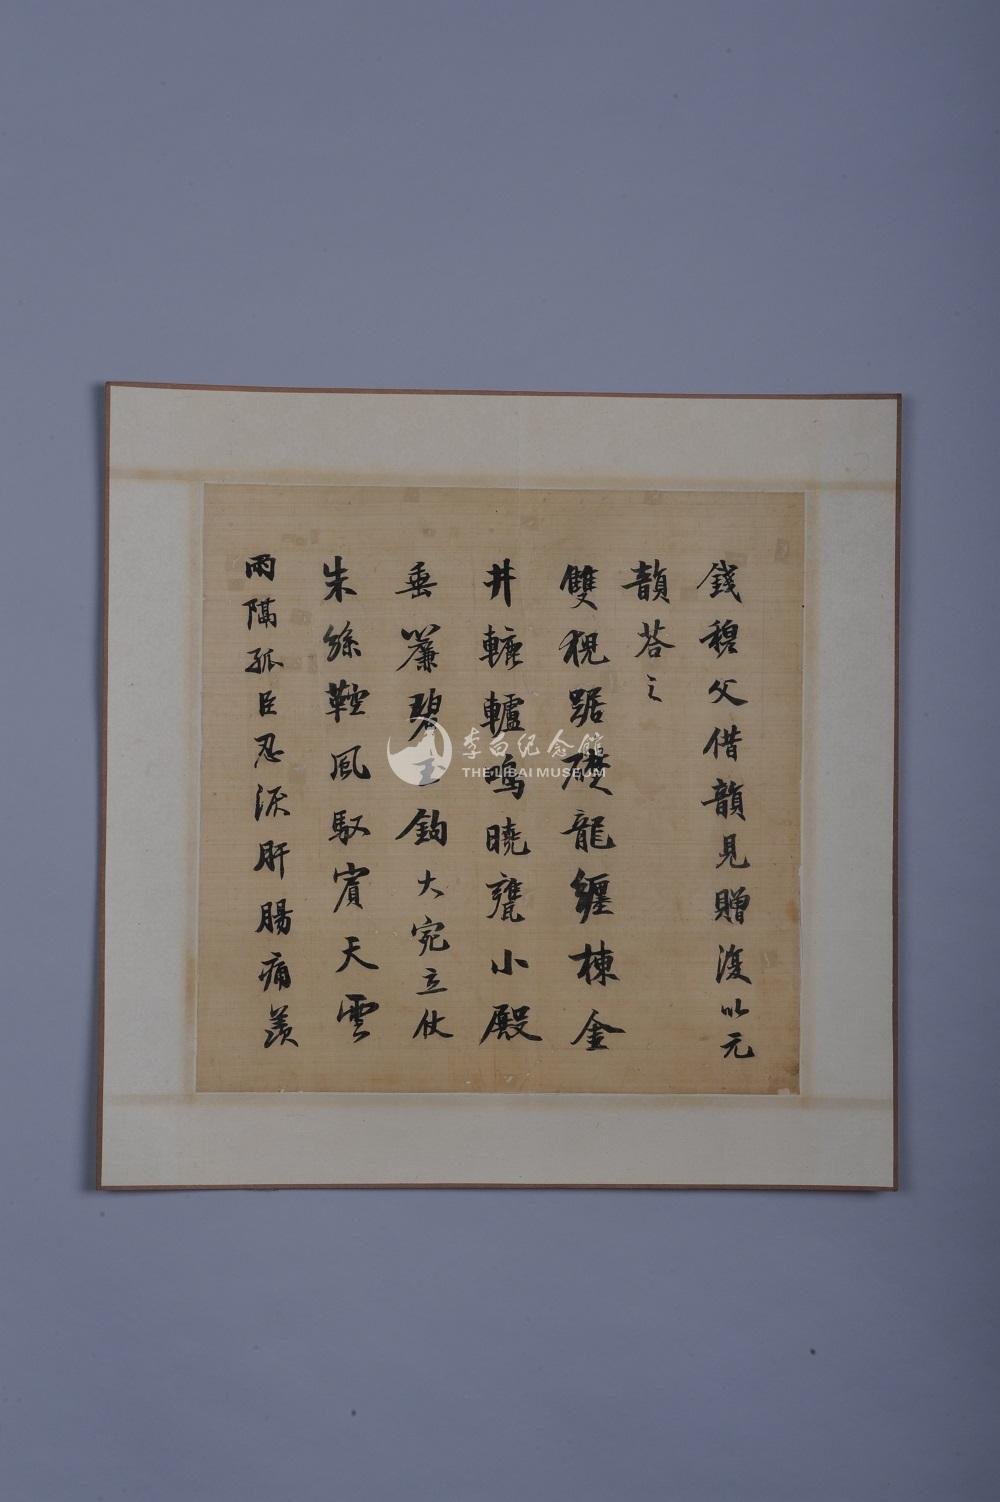 錢穆父借韻見贈復以元
韻荅之
雙猊踞礎龍纏棟金
井轆轤鳴曉甕小殿
垂簾碧玉鈎大宛立仗
朱絲鞚風馭賓天雲
雨隔孤臣忍淚肝腸痛羨
李白纪念馆
THE LIBAI MUSEUM